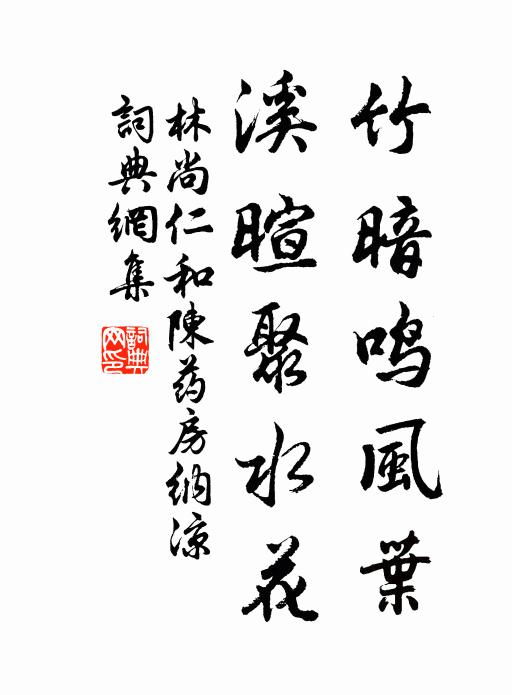 竹暗鸣風葉
溪暄聚水花
林尚仁和陳药房納凉
詞典網集
詞典网印